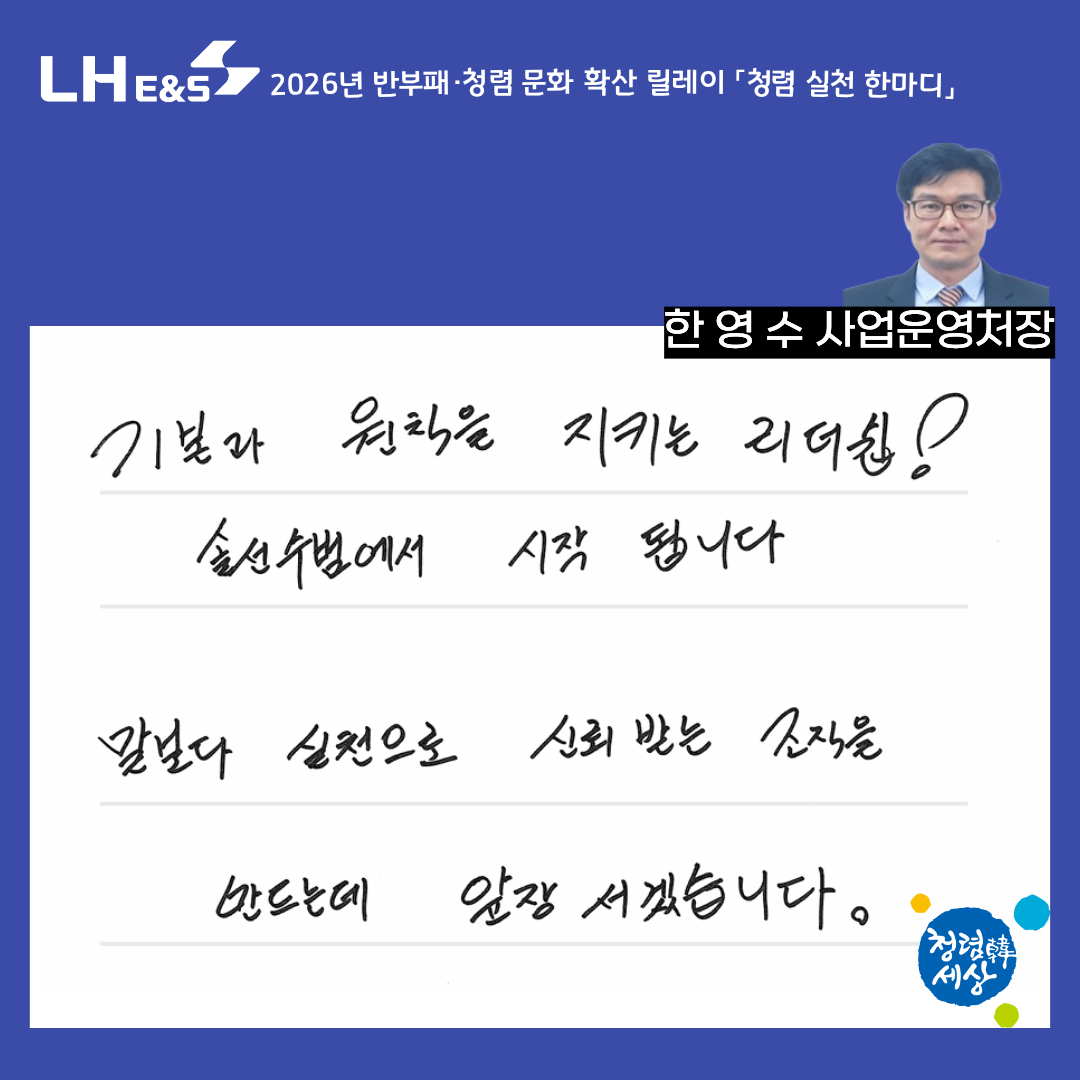 LH E&S 2026년 반부패·청렴 문화 확산 릴레이 「청렴 실천 한마디」
한 영 수 사업운영처장
기본과 원칙을 지키는 리더쉽!
솔선수범에서 시작 됩니다
말보다 실천으로 신뢰 받는 조직을
만드는데 앞장 서겠습니다.
청렴韓
세상